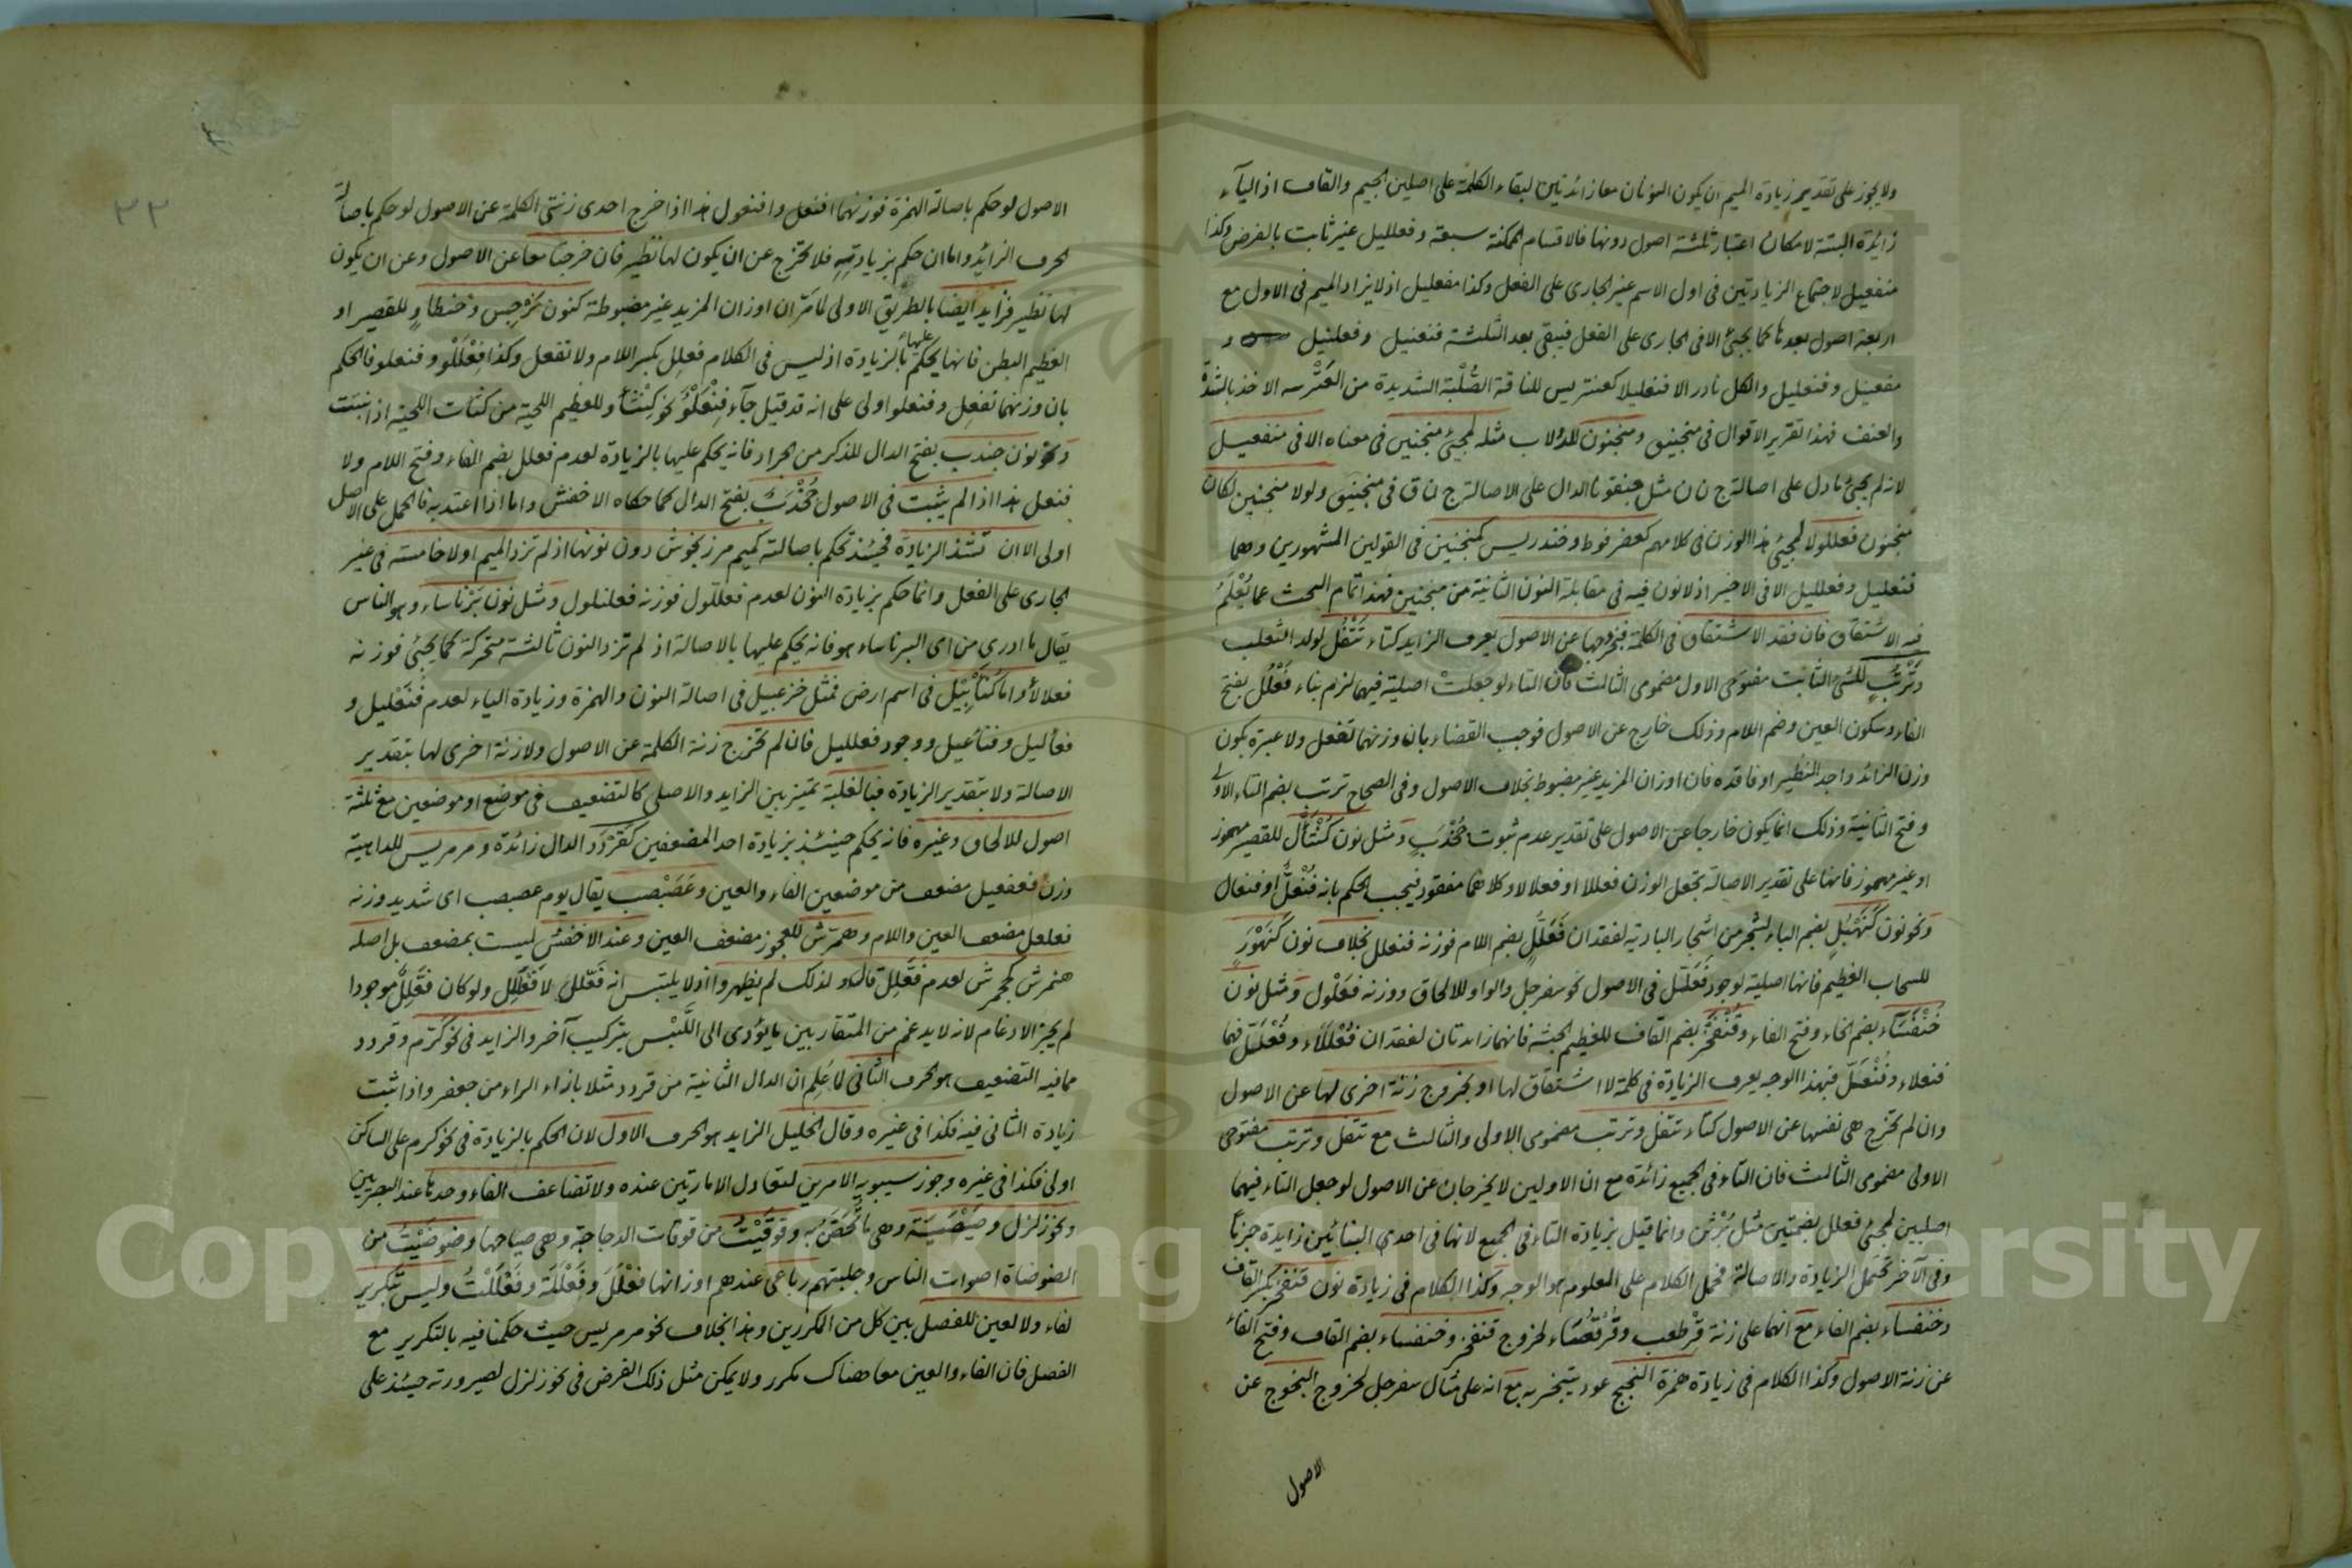 ولا يجوز على تقدير زيادة الميم ان يكون النونان معا زائدتين لبقاء الكلمة على اصلين الجيم والقاف اذ الياء
زائدة البتة لامكان اعتبار ثلثة اصول دونها فالاقسام الممكنة سبعة وفعلليل غير ثابت بالفرض وكذا
منفعيل لاجتماع الزيادتين في اول الاسم غير الجارى على الفعل وكذا مفعليل اذ لا يزاد الميم في الاول مع
اربعة اصول بعدها كما يجئ الا في الجارى على الفعل فيبقى بعد الثلثة فنعنيل وفعلنيل و
مفعنيل وفنعليل والكل نادر الا فنعليلا كعنتريس للناقة الصُّلْبة الشديدة من العَتْرسه الاخذ بالشدة
والعنف فهذا تقرير الاقوال في منجنيق ومنجنون للدولاب مثله لمجئ منجنين في معناه الا في منفعيل
لانه لم يجئ ما دل على اصالة ج ن ن مثل جنقونا الدال على الاصالة ج ن ق في منجنيق ولولا منجنين لكان
منجنون فعللولا لمجئ هذا الوزن في كلامهم كعضرفوط وخندريس كمنجنين في القولين المشهورين وهما
فنعليل وفعلليل الا في الاخير اذ لا نون فيه في مقابلة النون الثانية من منجنين فهذا تمام البحث عما يُعْلَمُ
فيه الاشتقاق فان فقد الاشتقاق في الكلمة فبخروجها عن الاصول يعرف الزايد كتاء تَتْفُل لولد الثعلب
وتَرْتُبٍ للشئ الثابت مفتوحى الاول مضمومى الثالث فان التاء لو جعلت اصلية فيهما لزم بناء فَعْلُل بفتح
الفاء وسكون العين وضم اللام وذلك خارج عن الاصول فوجب القضاء بان وزنهما تفعل ولا عبرة بكون
وزن الزائد واجد النظير او فاقده فان اوزان المزيد غير مضبوط بخلاف الاصول وفي الصحاح ترتب بضم التاء الاولى
وفتح الثانية وذلك انما يكون خارجا عن الاصول على تقدير عدم ثبوت جُخْدَبٍ ومثل نون كُنْتَأْل للقصير مهموز
او غير مهموز فانها على تقدير الاصالة يجعل الوزن فعللا او فعلالا وكلاهما مفقود فيجب الحكم بانه فُنْعَلّ او فنعال
ونحو نون كَنَهْبُلٍ بضم الباء لشجر من اشجار البادية لفقدان فَعَلُّلٍ بضم اللام فوزنه فنعلل بخلاف نون كَنَهْوَرٍ
للسحاب العظيم فانها اصلية لوجود فَعَلَّل في الاصول نحو سفرجل والواو للالحاق ووزنه فَعَلْول ومثل نون
خُنْفَسَاء بضم الخاء وفتح الفاء وقُنْفَخْرٍ بضم القاف للعظيم الجثة فانهما زايدتان لفقدان فُعْلَلَاء وفُعْلَلّ فهما
فنعلاء وفُنْعَلّ فبهذا الوجه يعرف الزيادة في كلمة لا اشتقاق لها او بخروج زنة اخرى لها عن الاصول
وان لم تخرج هى نفسها عن الاصول كتاء تتفل وترتب مضمومى الاولى والثالث مع تتفل وترتب مفتوحى
الاولى مضمومى الثالث فان التاء في الجميع زائدة مع ان الاولين لا يخرجان عن الاصول لو جعل التاء فيهما
اصليين لمجئ فعلل بضمتين مثل بُرْثن وانما قيل بزيادة التاء في الجميع لانها في احدى البنائين زايدة جزما
وفي الآخر تحتمل الزيادة والاصالة فحمل الكلام على المعلوم هو الوجه وكذا الكلام في زيادة نون قنفخر بكسر القاف
وخنفساء بضم الفاء مع انهما على زنة قِرْطَعب وقُرْفُصَاء لخروج قنفخر وخنفساء بضم القاف وفتح الفاء
عن زنة الاصول وكذا الكلام في زيادة همزة النجج عود يتبخر به مع انه على مثال سفرجل لخروج النجوج عن
الاصول
٣٢
الاصول لو حكم باصالة الهمزة فوزنهما افنعل وافنعول هذا اذا خرج احدى زنتى الكلمة عن الاصول لو حكم باصالة
الحرف الزائد واما ان حكم بزيادته فلا تخرج عن ان يكون لها نظير فان خرجتا معا عن الاصول وعن ان يكون
لها نظير فزايد ايضا بالطريق الاولى لما مر ان اوزان المزيد غير مضبوطة كنون نَرْجِس وحنطاوٍ للقصير او
العظيم البطن فانها يحكم عليهما بالزيادة اذ ليس في الكلام فعلِل بكسر اللام ولا نفعل وكذا فِعْلَلْو وفنعلو فالحكم
بان وزنهما نفعِل وفنعلو اولى على انه قد قيل جاء فِنْعَلْوٌ نحو كِنْثَأْو للعظيم اللحية من كثأت اللحية اذا نبتت
ونحو نون جندب بفتح الدال للذكر من الجراد فانه يحكم عليها بالزيادة لعدم فعلل بضم الفاء وفتح اللام ولا
فنعل هذا اذا لم يثبت في الاصول جُخْدَبٌ بفتح الدال كما حكاه الاخفش واما اذا اعتد به فالحمل على الاصل
اولى الا ان تشذ الزيادة فحينئذ تحكم باصالته كميم مرزنجوش دون نونها اذ لم تزد الميم اولا خامسة في غير
الجارى على الفعل وانما حكم بزيادة النون لعدم فعللول فوزنه فعلنلول ومثل نون بَرْنَاسَاء وهو الناس
يقال ما ادرى من اى البرناساء هو فانه يحكم عليها بالاصالة اذ لم تزد النون ثالثة متحركة كما يجئ فوزنه
فعلالاء واما كُنَأْبِيْل في اسم ارض فمثل خزعبيل في اصالة النون والهمزة وزيادة الياء لعدم فُنَعْليل و
فعأليل وفنأعيل ووجود فعلليل فان لم تخرج زنة الكلمة عن الاصول ولا زنة اخرى لها بتقدير
الاصالة ولا بتقدير الزيادة فبالغلبة تميز بين الزايد والاصلى كالتضعيف في موضع او موضعين مع ثلثة
اصول للالحاق وغيره فانه يحكم حينئذ بزيادة احد المضعفين كقَرْدَد الدال زائدة ومرمريس للداهية
وزن فعفعيل مضعف من موضعين الفاء والعين وعَصَبْصَب يقال يوم عصبصب اى شديد وزنه
فعلعل مضعف العين واللام وهمّرش للعجوز مضعف العين وعند الاخفش ليست بمضعف بل اصله
هنمرش كجحمرش لعدم فعَّلِل قال ولذلك لم يظهروا اذ لا يلتبس انه فَعَّلِل لا فَعْلَلِل ولو كان فَعَّلِلٌ موجودا
لم يجز الادغام لانه لا يدغم من المتقاربين ما يؤدى الى اللَّبْس بتركيب آخر والزايد في نحو كَرَّم وقردد
مما فيه التضعيف هو الحرف الثانى لما عُلِم ان الدال الثانية من قردد مثلا بازاء الراء من جعفر واذا ثبت
زيادة الثانى فيه فكذا في غيره وقال الخليل الزايد هو الحرف الاول لان الحكم بالزيادة في نحو كرم على الساكن
اولى فكذا في غيره وجوز سيبويه الامرين لتعادل الامارتين عنده ولا تضاعف الفاء وحدها عند البصريين
ونحو زلزل وصِيْصِيَة وهى ما تُحَصَّن به وقوقَيْتُ من قوقات الدجاجة وهى صياحها وضوضَيْتُ من
الضوضاة اصوات الناس وجلبتهم رباعى عندهم اوزانها فَعْلَلَ وفَعْلَلَة وفَعْلَلْتُ وليس تكرير
لفاء ولا لعين للفصل بين كل من المكررين وهذا بخلاف نحو مرمريس حيث حكمنا فيه بالتكرير مع
الفصل فان الفاء والعين معا هناك مكرر ولا يمكن مثل ذلك الفرض في نحو زلزل لصيرورته حينئذ على
Copyright © King Saud University